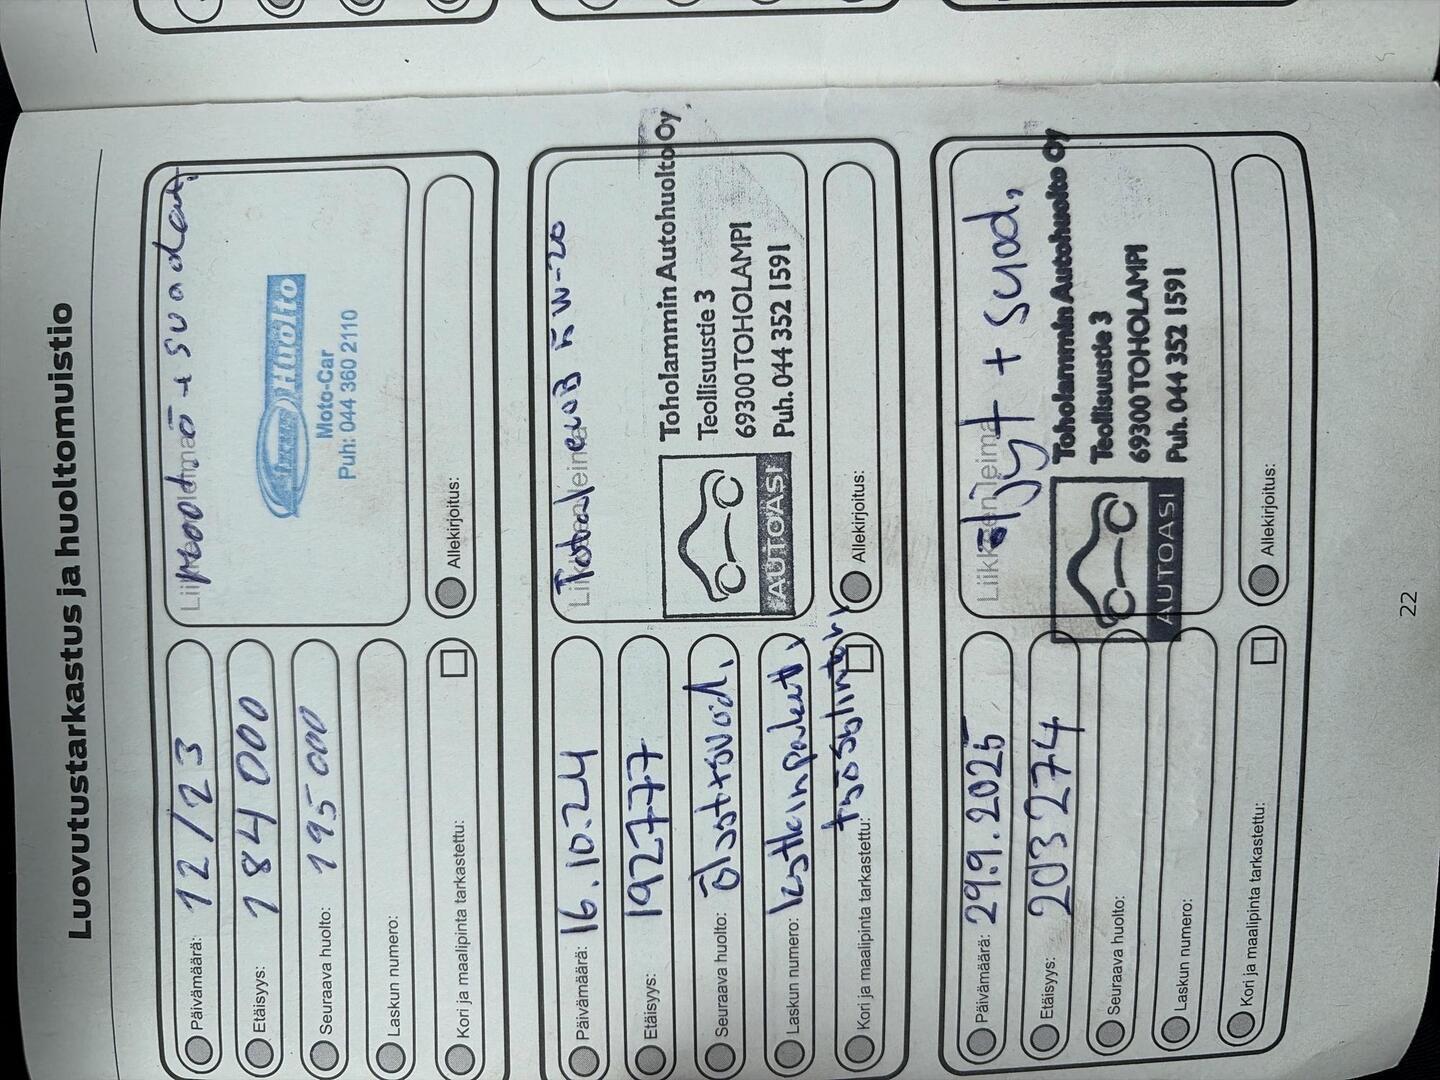 Luovutustarkastus ja huoltomuistio
Päivämäärä: 12/23
Etäisyys: 184 000
Seuraava huolto: 195 000
Laskun numero:
Kori ja maalipinta tarkastettu:
+ suodat.
Huolto
Moto-Car
Puh: 044 360 2110
Allekirjoitus:
Päivämäärä: 16.10.24
Etäisyys: 192777
Seuraava huolto: öljyt+suod.
Laskun numero:
Kori ja maalipinta tarkastettu:
Total 5W-20
Toholammin Autohuolto Oy
Teollisuustie 3
69300 TOHOLAMPI
Puh. 044 352 1591
AUTOASI
Allekirjoitus:
Päivämäärä: 29.9.2025
Etäisyys: 203 274
Seuraava huolto:
Laskun numero:
Kori ja maalipinta tarkastettu:
Liikkeen leima
öljyt + suod,
Toholammin Autohuolto Oy
Teollisuustie 3
69300 TOHOLAMPI
Puh. 044 352 1591
AUTOASI
Allekirjoitus:
22